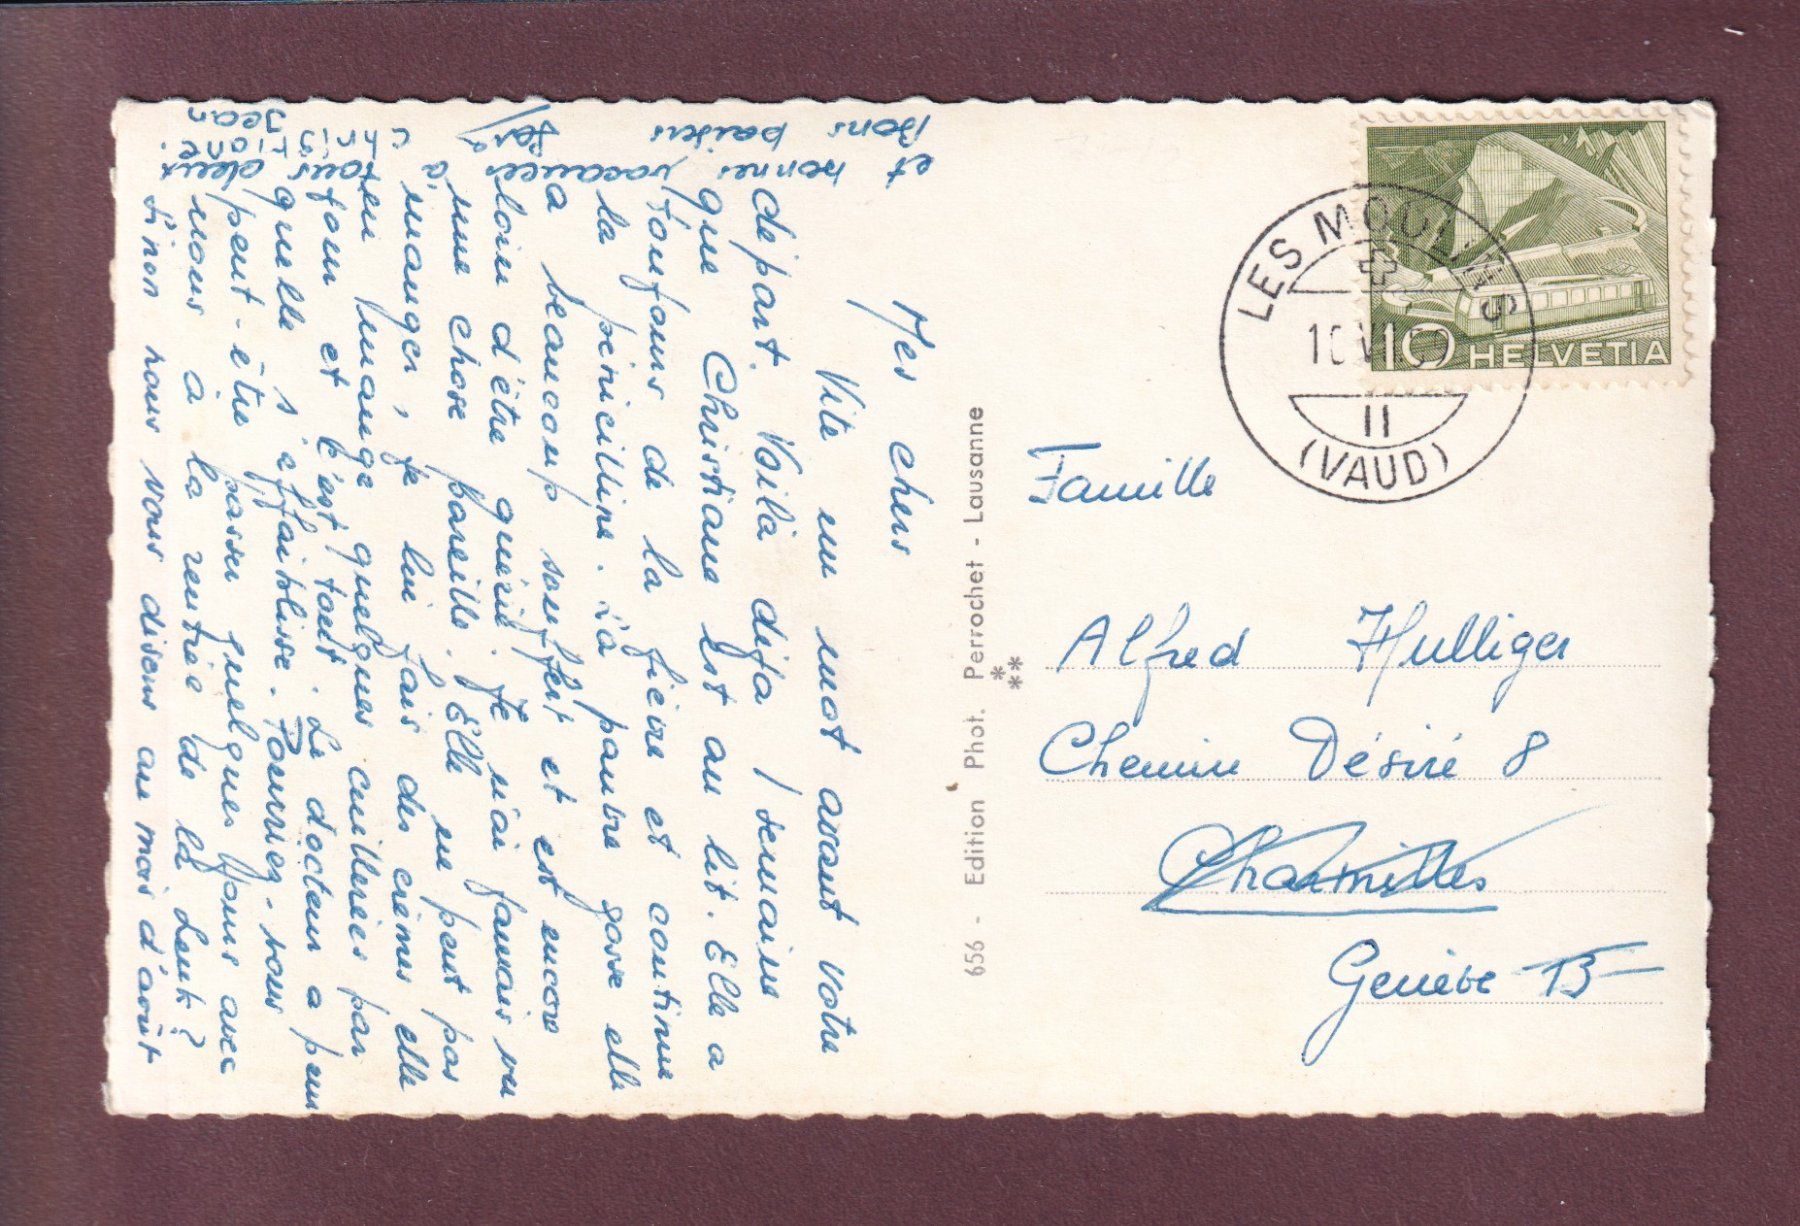 Mes chers
Vite un mot avant votre
départ. Voilà déjà 1 semaine
que Christiane est au lit. Elle a
toujours de la fièvre et continue
la pénicilline. La pauvre gosse elle
a beaucoup souffert et est encore
loin d'être guérie. Je n'ai jamais vu
une chose pareille. Elle ne peut pas
manger, je lui fais des crèmes elle
en mange quelques cuillerées par
jour et c'est tout. Le docteur a peur
quelle s'affaiblisse. Pourriez-vous
peut-être passer quelques jours avec
nous à la rentrée de la Lenk?
Sinon nous vous disons au mois d'août
et bonnes vacances à tous deux
Bons baisers
Christiane.
Jean
656 - Edition Phot. Perrochet - Lausanne
LES MOULINS
10 VI
II
(VAUD)
10 HELVETIA
Famille
Alfred Hulliger
Chemin Désiré 8
Charmilles
Genève 13